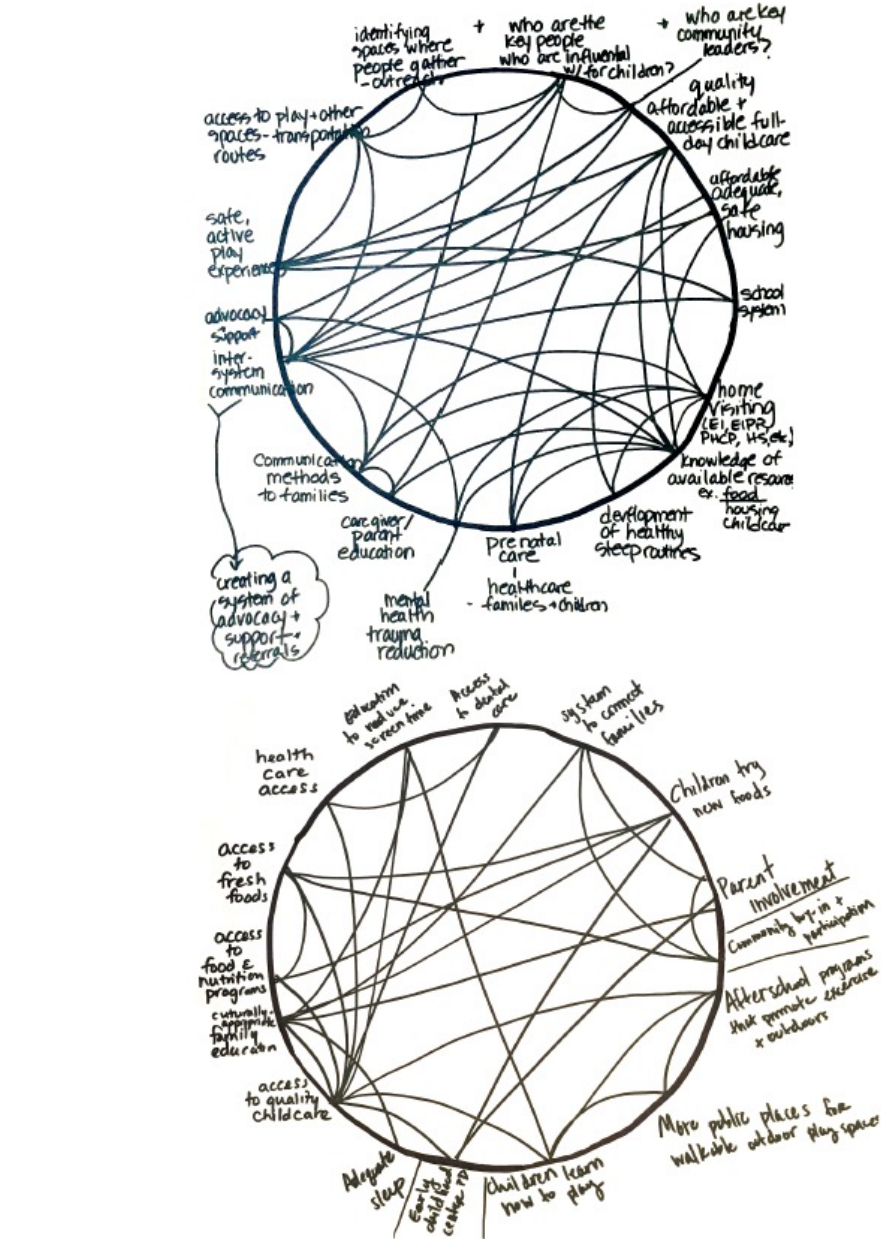 identifying
spaces where
people gather
- outreach
+ who are the
key people
who are influential
w/for children?
+ who are key
community
leaders?
quality
affordable +
accessible full-
day childcare
affordable
adequate,
safe
housing
school
system
home
visiting
(EI, EIPR,
PHCP, HS, etc)
knowledge of
available resour
ex. food
housing
childcar
development
of healthy
sleep routines
prenatal
care
healthcare
- familes + children
mental
health
trauma
reduction
caregiver/
parent
education
Communication
methods
to families
inter-
system
communication
creating a
system of
advocacy +
support +
referrals
advocacy
support
safe,
active
play
experience
access to play + other
spaces - transportation
routes
Education
to reduce
screen time
Access
to dental
care
system
to connect
families
Children try
new foods
Parent
involvement
Community buy-in +
participation
Afterschool programs
that promote exercise
+ outdoors
More public places for
walkable outdoor play spaces
Children learn
how to play
Early
childhood
center PD
Adequate
sleep
access
to quality
childcare
culturally-
appropriate
family
education
access
to
food &
nutrition
programs
access
to
fresh
foods
health
care
access